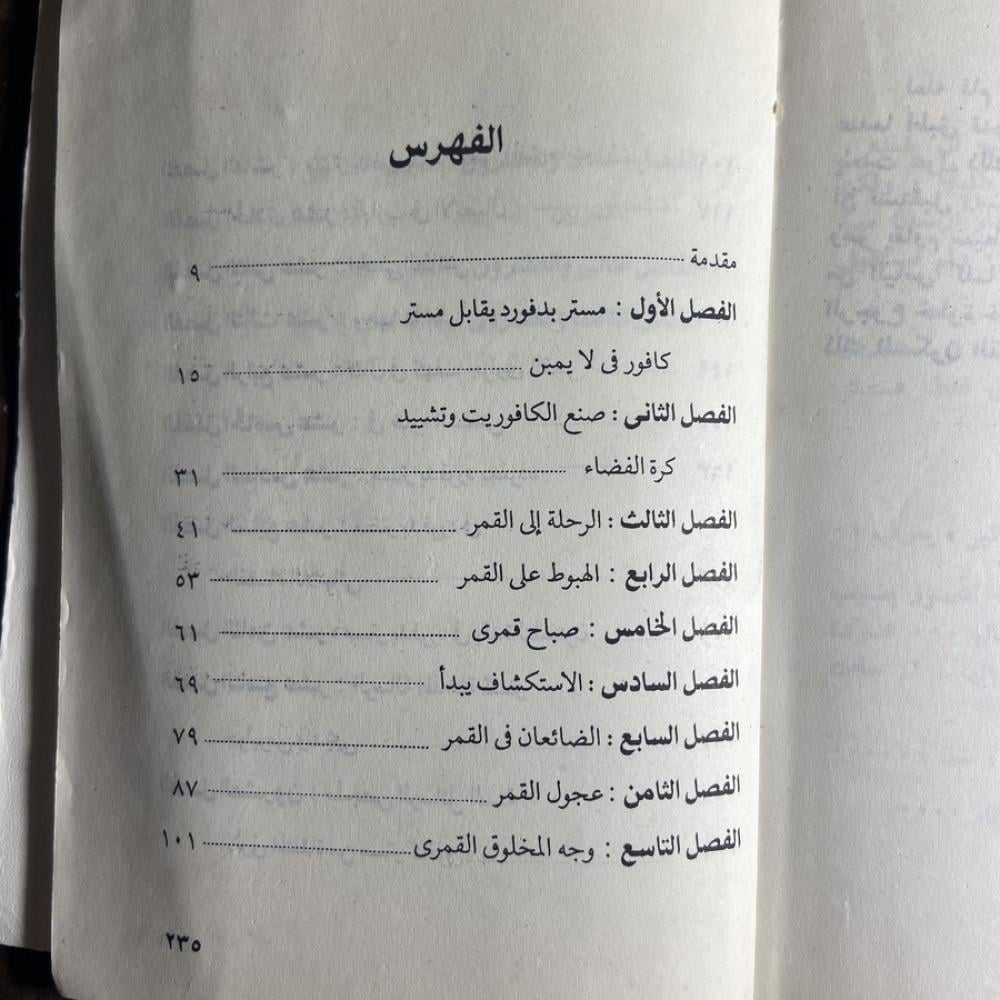 الفهرس
مقدمة ........ ٩
الفصل الأول : مستر بدفورد يقابل مستر
كافور فى لا يمبن ........ ١٥
الفصل الثانى : صنع الكافوريت وتشييد
كرة الفضاء ........ ٣١
الفصل الثالث : الرحلة إلى القمر ........ ٤١
الفصل الرابع : الهبوط على القمر ........ ٥٣
الفصل الخامس : صباح قمرى ........ ٦١
الفصل السادس : الاستكشاف يبدأ ........ ٦٩
الفصل السابع : الضائعان فى القمر ........ ٧٩
الفصل الثامن : عجول القمر ........ ٨٧
الفصل التاسع : وجه المخلوق القمرى ........ ١٠١
٢٣٥